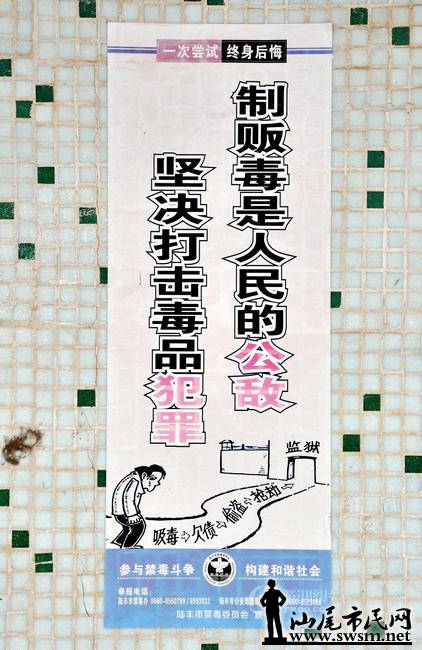 一次尝试 终身后悔
制贩毒是人民的公敌
坚决打击毒品犯罪
监狱
吸毒⇨欠债⇨偷盗⇨抢劫⇨
参与禁毒斗争 构建和谐社会
举报电话:
陆丰市禁毒办 0660-8560789 / 8993033 陆丰市公安局
陆丰市禁毒委员会 宣
汕尾市民网
www.swsm.net